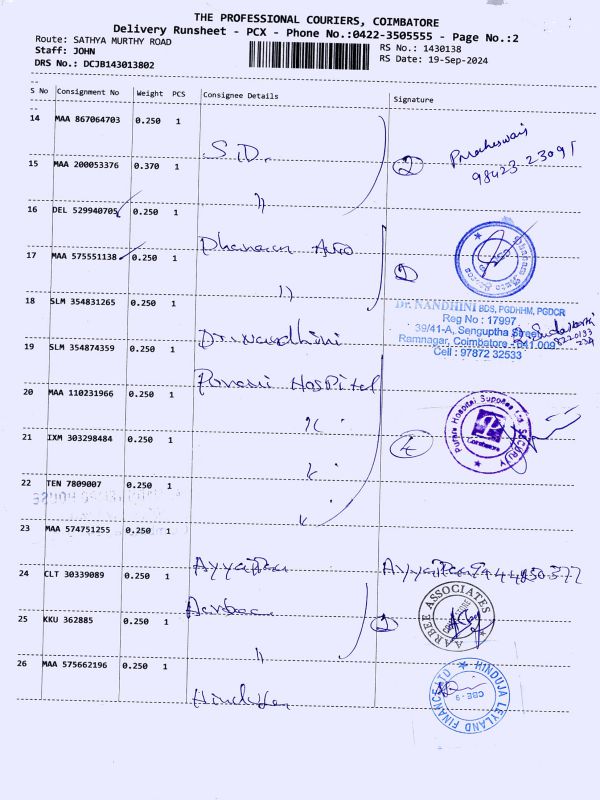 THE PROFESSIONAL COURIERS, COIMBATORE
Delivery Runsheet - PCX - Phone No.:0422-3505555 - Page No.:2
Route: SATHYA MURTHY ROAD
RS No.: 1430138
Staff: JOHN
RS Date: 19-Sep-2024
DRS No.: DCJB143013802
S No Consignment No Weight PCS Consignee Details Signature
14 MAA 867064703 0.250 1
S.D.
15 MAA 200053376 0.370 1
2
98423 23091
16 DEL 529940705 0.250 1
17 MAA 575551138 0.250 1
18 SLM 354831265 0.250 1
Dr. NANDHINI BDS, PGDHHM, PGDCR
Reg No : 17997
39/41-A, Senguptha Street,
Ramnagar, Coimbatore - 641 009.
Cell : 97872 32533
19 SLM 354874359 0.250 1
Hospital
20 MAA 110231966 0.250 1
21 IXM 303298484 0.250 1
4
22 TEN 7809007 0.250 1
23 MAA 574751255 0.250 1
Ayyappan
24 CLT 30339089 0.250 1
25 KKU 362885 0.250 1
ARBEE ASSOCIATES
26 MAA 575662196 0.250 1
HINDUJA LEYLAND FINANCE LTD
CBE - 9